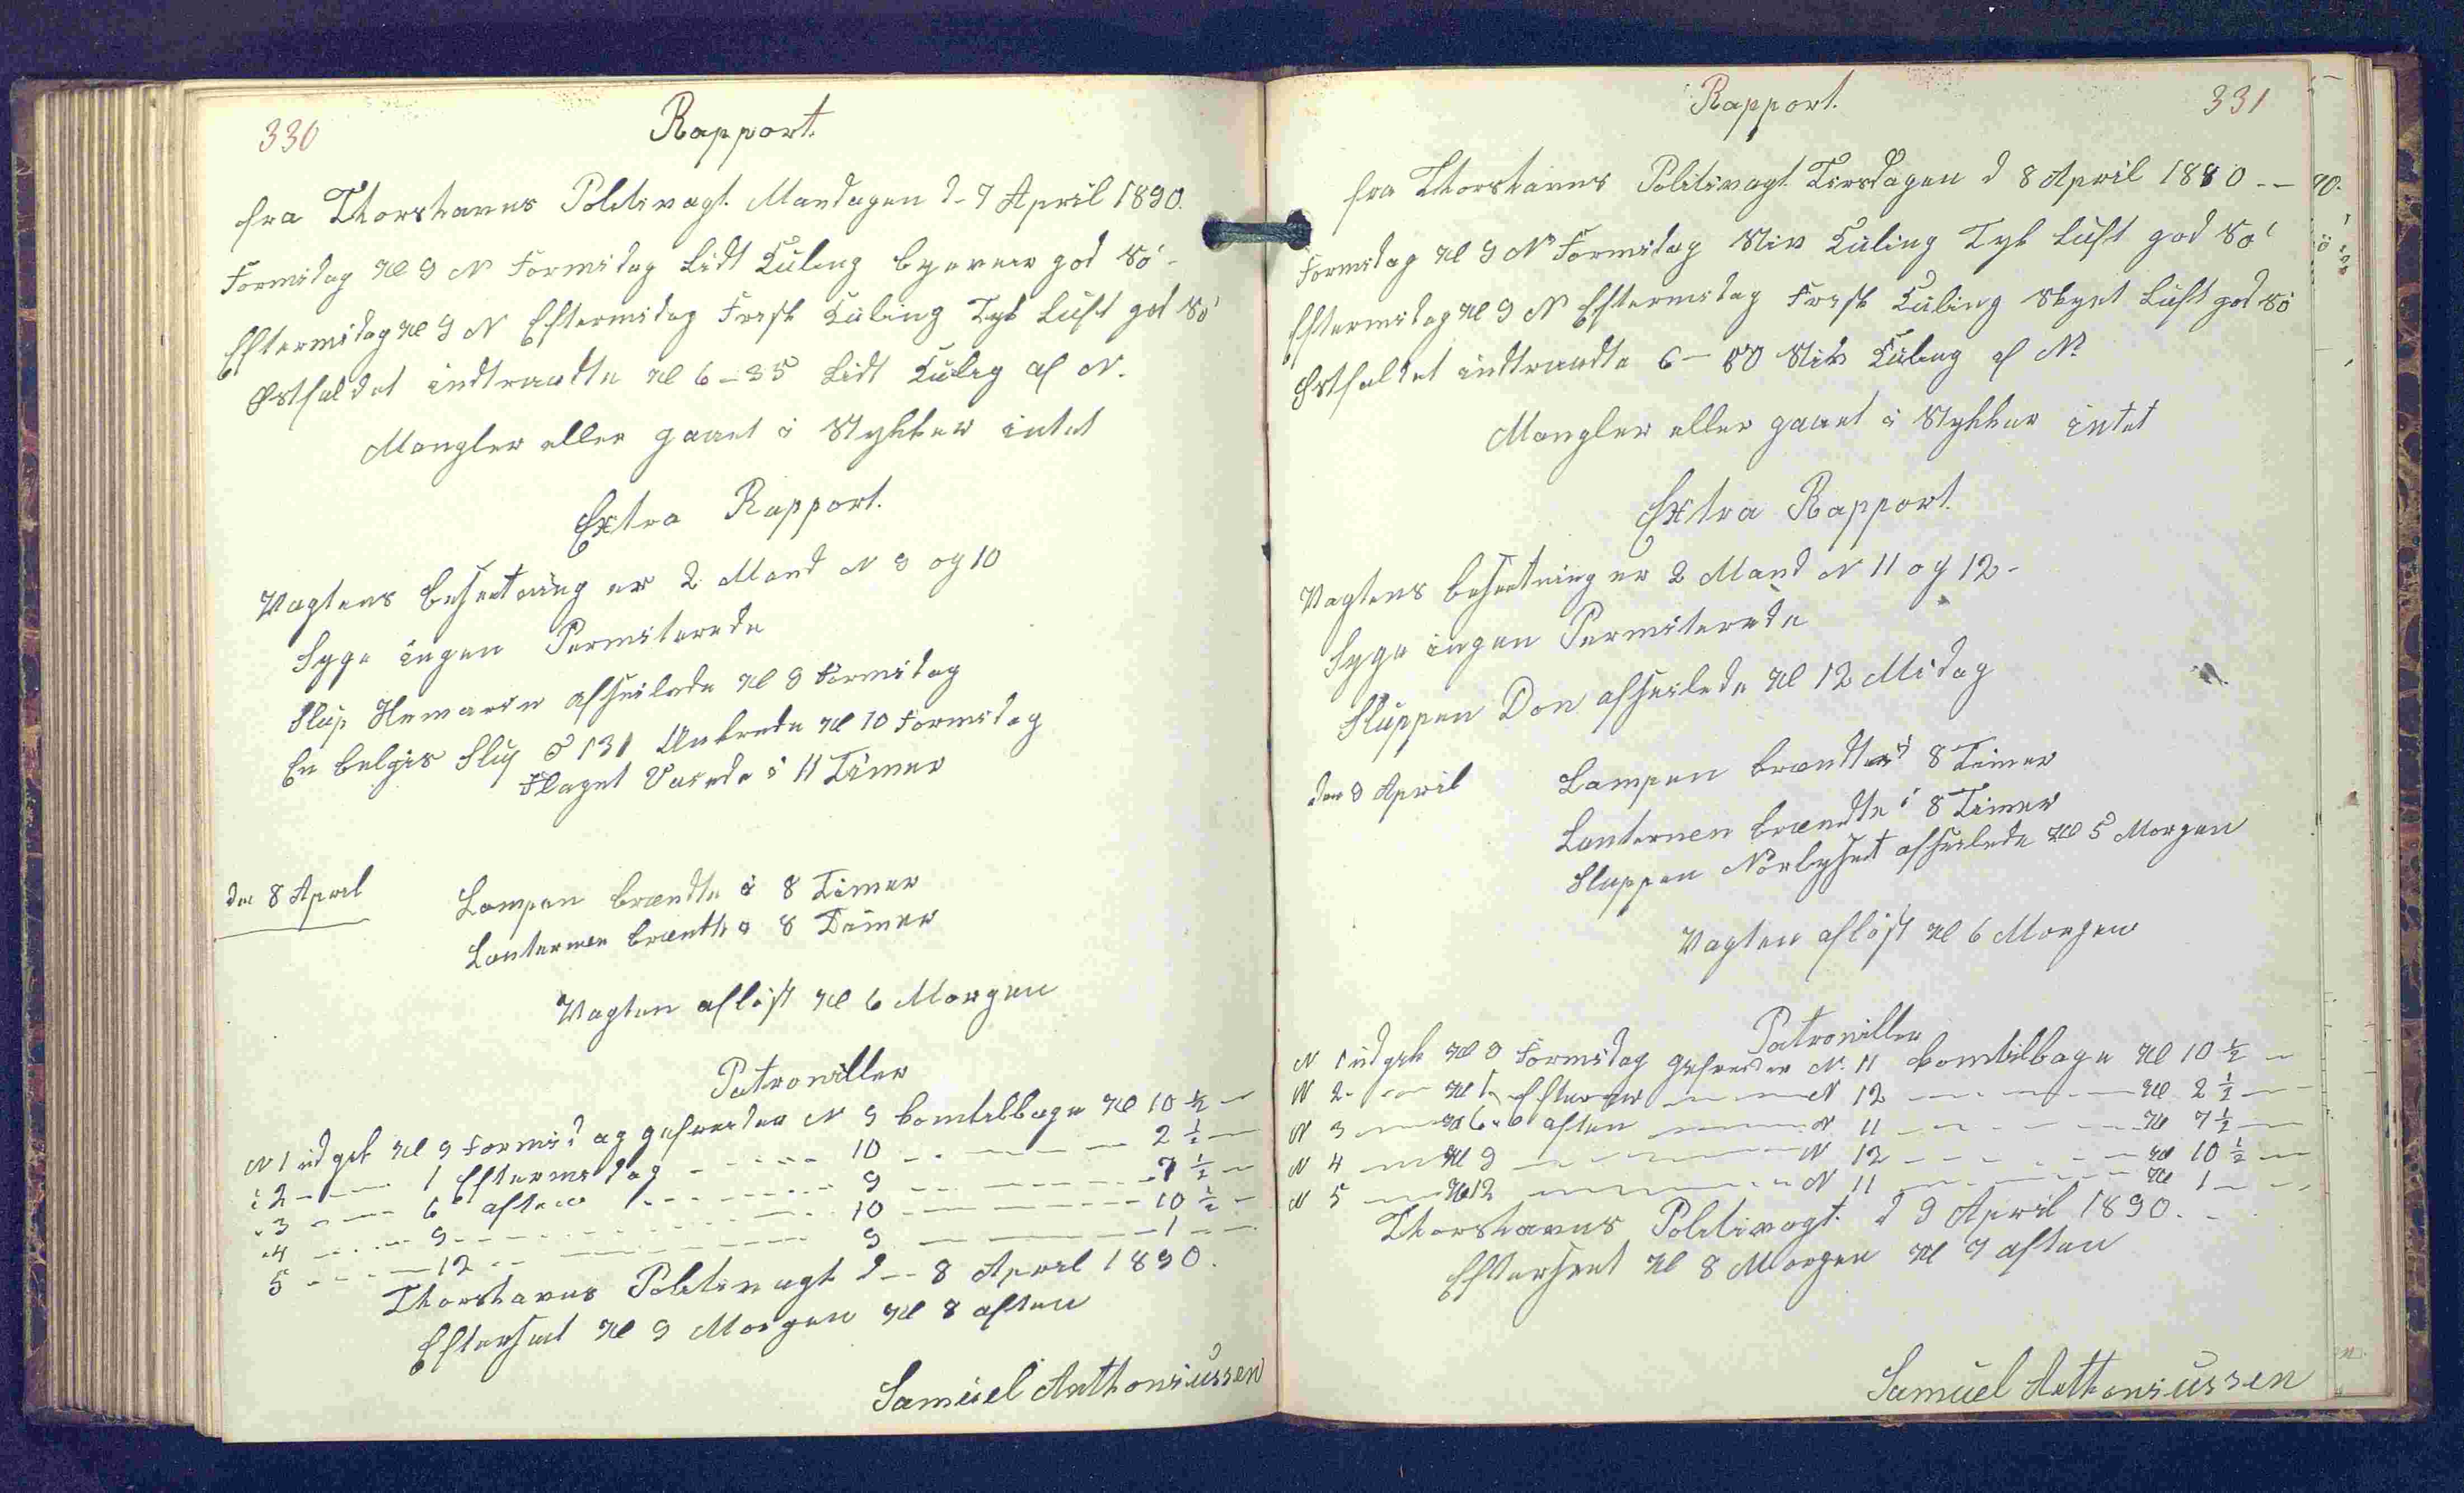 330
Rapport.
fra Thorshavns Politivagt. Mandagen d. 7 April 1890.
Formidag Kl 9 N Formidag Lidt Kuling byeveir god Sö
Eftermidag Kl 9 N Eftermidag Frisk Kuling Tyk Luft god Sö
Østfaldet indtraadte Kl 6-35 Lidt Kulig af N.
Mangler eller gaaet i Stykker intet
Extra Rapport.
Vagtens besætning er 2 Mand N 9 og 10
Syge ingen Permiterede
Slup afseilede Kl 9 Formidag
En belgis Slup O 131 Ankrede Kl 10 Formidag
Flaget Vaiede i 11 Timer
den 8 April
Lampen brændte i 8 Timer
Lanternen brændte i 8 Timer
Vagten aflöst Kl 6 Morgen
Patrouiller
N 1 udgik Kl 9 Formidag gefreider N 9 komtilbage Kl 10 ½ —
2 - — 1 Eftermidag - - - - 10 - - — 2 ½ —
3 - — 6 aften - - - - 9 — - 7 ½ —
4 - - - 9 - - - - 10 — - 10 ½ —
5 - - - 12 - - — 9 — — 1 - —
Thorshavns Politivagt d - 8 April 1890.
Efterseet Kl 9 Morgen Kl 8 aften
Samuel Anthoniussen
Rapport.
331
fra Thorshavns Politivagt Tirsdagen d 8 April 1880 - - 90.
Formidag Kl 9 N Formidag Stiv Kuling Tyk Luft god Sö
Eftermidag Kl 9 N Eftermidag Frisk Kuling Skyet Luft god Sö
Østfaldet indtraadte 6 - 50 Stiv Kuling af N
Mangler eller gaaet i Stykker intet
Extra Rapport.
Vagtens besætning er 2 Mand N 11 og 12 -
Syge ingen Permiterede
Sluppen Don afseilede Kl 12 Midag
den 9 April
Lampen brændte i 8 Timer
Lanternen brændte i 8 Timer
Sluppen afseilede Kl 5 Morgen
Vagten aflöst Kl 6 Morgen
Patrouiller
N 1 udgik Kl 9 Formidag gefreider N. 11 komtilbage Kl 10 ½ —
N 2 - — Kl 1 Efterm — — N 12 — - - — Kl 2 ½ —
N 3 — — Kl 6 aften — — N 11 — - - - Kl 7 ½ —
N 4 — — Kl 9 — — — N 12 - - - - — Kl 10 ½ —
N 5 — — Kl 12 — — — N 11 — - — — Kl 1 — - -
Thorshavns Politivagt. d 9 April 1890. -
Efterseet Kl 8 Morgen Kl 9 aften
Samuel Anthoniussen